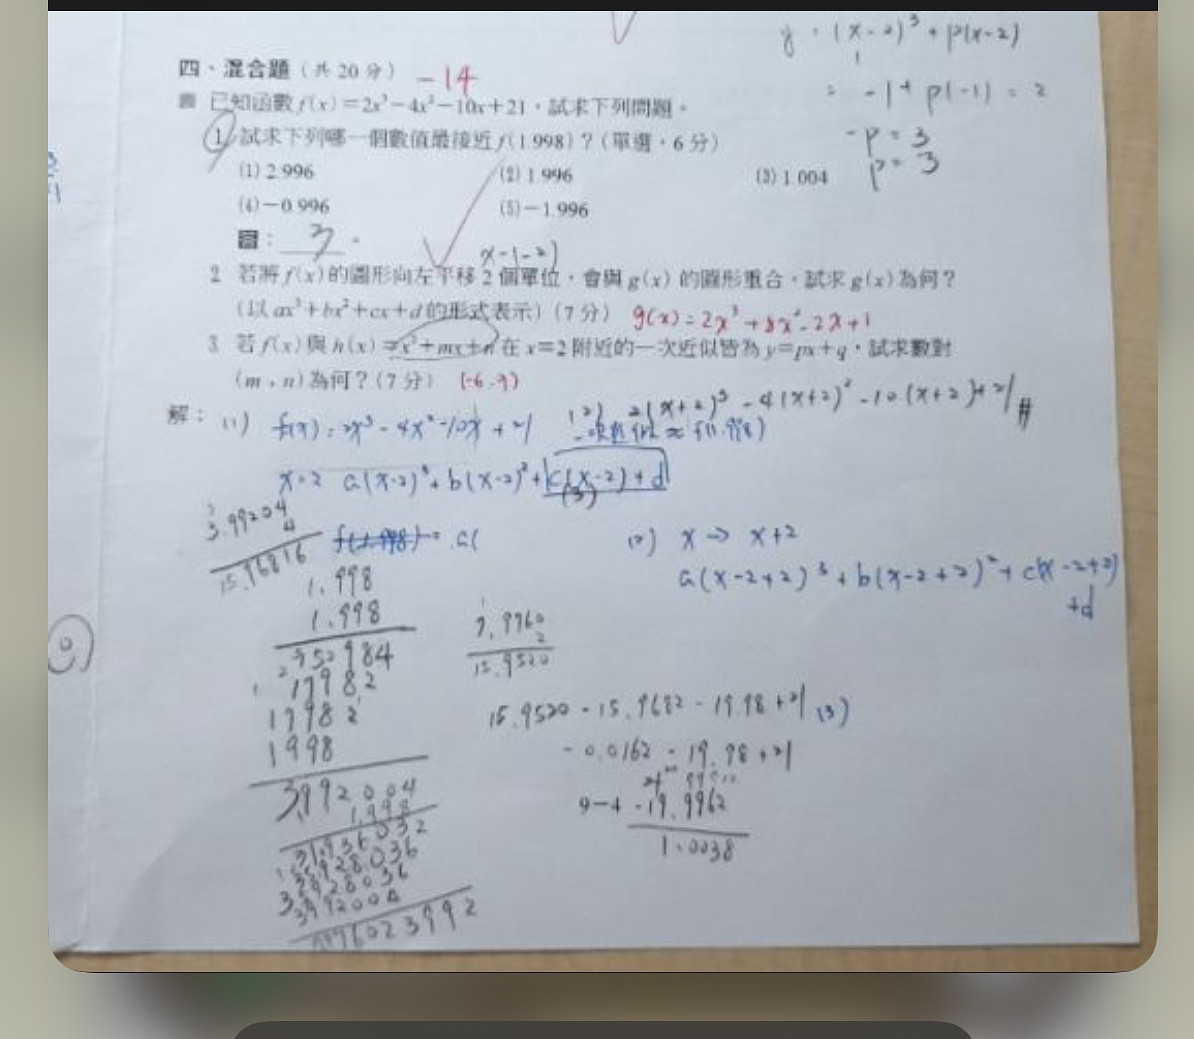 y = (x-2)³ + p(x-2)
= -1 + p(-1) = 2
-p = 3
p = 3
四、混合題（共 20 分） -14
已知函數 f(x)=2x³-4x²-10x+21，試求下列問題。
1 試求下列哪一個數值最接近 f(1.998)？（單選，6 分）
(1) 2.996 (2) 1.996 (3) 1.004
(4) -0.996 (5) -1.996
答： 3 。
x-(-2)
2 若將 f(x) 的圖形向左平移 2 個單位，會與 g(x) 的圖形重合，試求 g(x) 為何？
（以 ax³+bx²+cx+d 的形式表示）（7 分） g(x)=2x³+8x²-2x+1
3 若 f(x) 與 h(x)=x²+mx+n 在 x=2 附近的一次近似皆為 y=px+q，試求數對
（m，n）為何？（7 分） (-6,9)
解： (1) f(x)=2x³-4x²-10x+21 (2) 2(x+2)³-4(x+2)²-10(x+2)+21 #
一次近似 ≈ f(1.998)
x=2 a(x-2)³+b(x-2)²+c(x-2)+d
(3)
3.99204
4
15.96816
f(1.998)= a(
(2) x → x+2
a(x-2+2)³+b(x-2+2)²+c(x-2+2)
+d
1.998
1.998
17982
17982
1998
3992004
1.998
7.9760
2
15.9520
15.9520-15.9682-19.98+21 (3)
-0.0162-19.98+21
9-4 -19.9962
1.0038